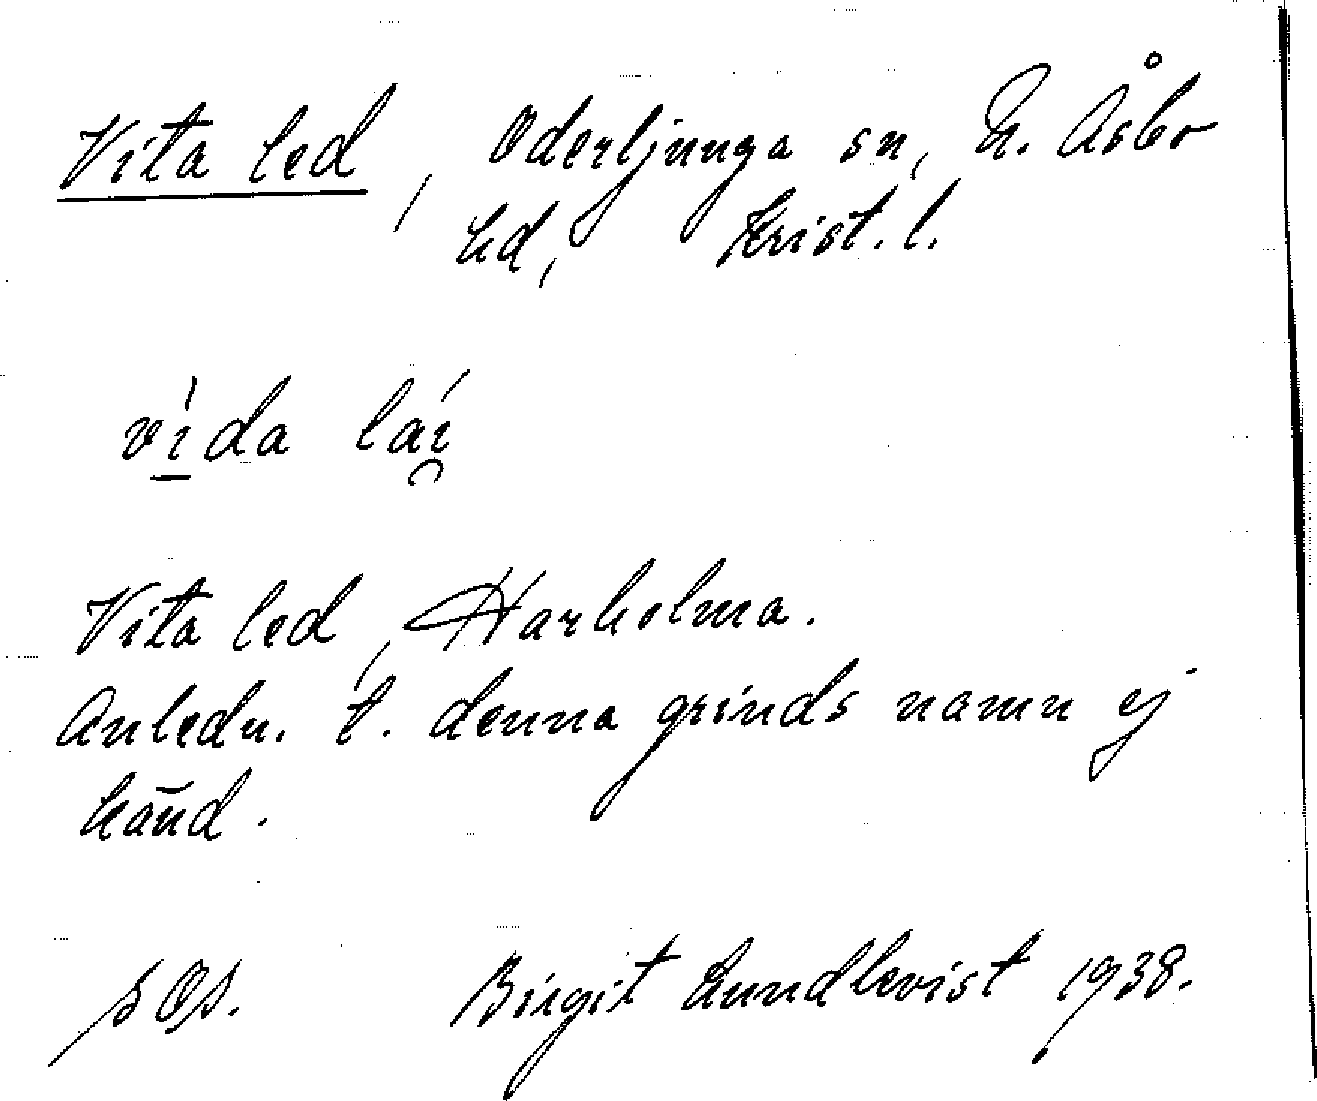 Vita led, Oderljunga sn, N. Åsbo
hd, Krist. l.
vi̲da lái̯
Vita led, Harholma.
Anledn. t. denna grinds namn ej
känd.
Birgit Lundkvist 1938.